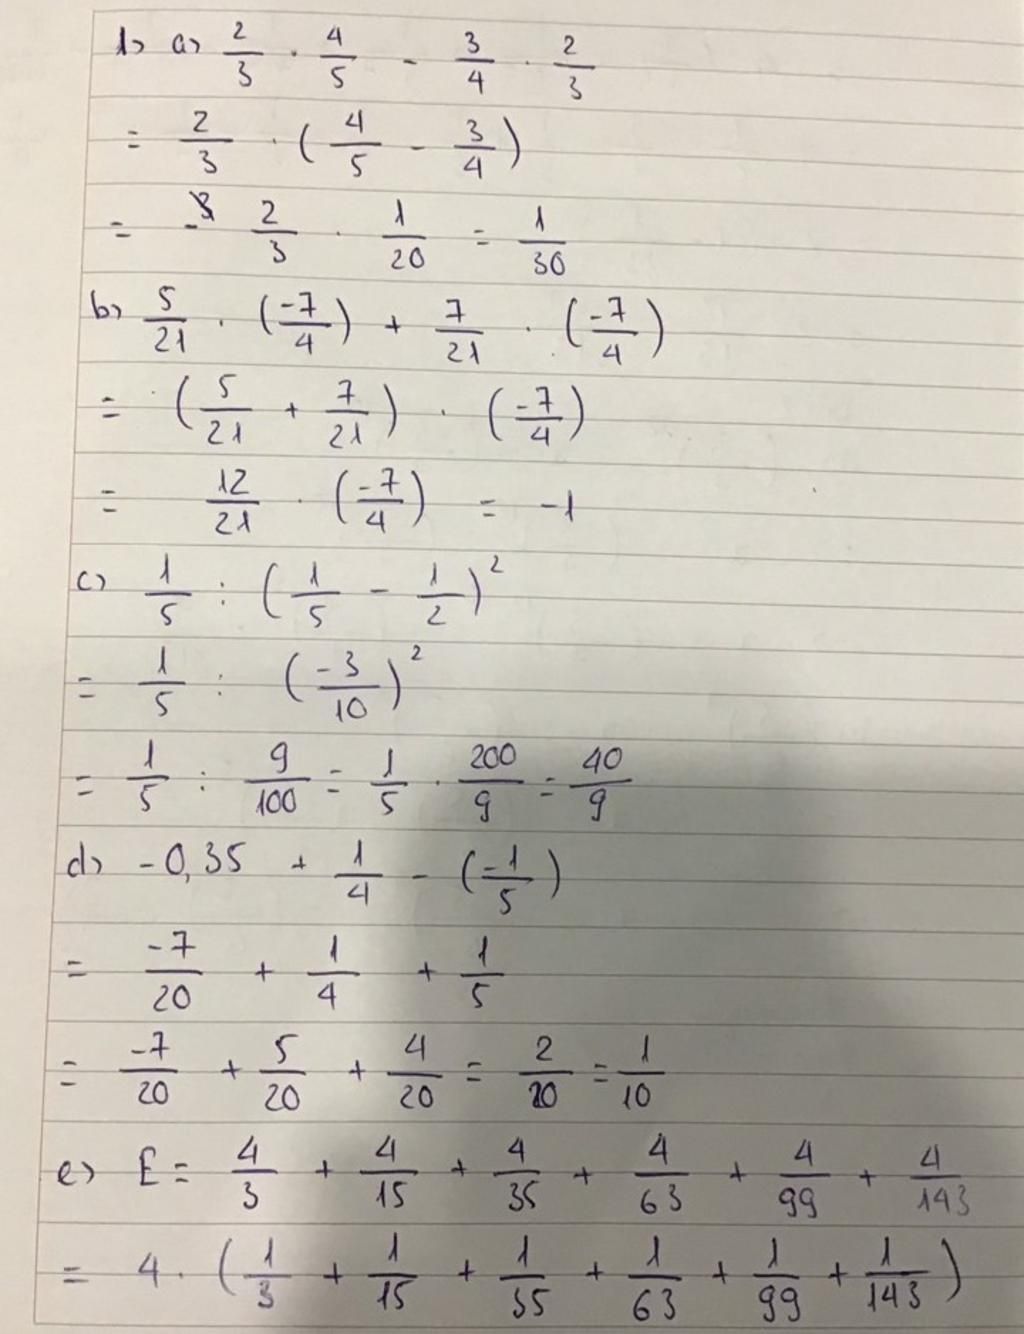 1) a) 2/3 . 4/5 - 3/4 . 2/3
= 2/3 . (4/5 - 3/4)
= - 2/3 . 1/20 = 1/30
b) 5/21 . (-7/4) + 7/21 . (-7/4)
= (5/21 + 7/21) . (-7/4)
= 12/21 . (-7/4) = -1
c) 1/5 : (1/5 - 1/2)²
= 1/5 : (-3/10)²
= 1/5 : 9/100 = 1/5 . 200/9 = 40/9
d) -0,35 + 1/4 - (-1/5)
= -7/20 + 1/4 + 1/5
= -7/20 + 5/20 + 4/20 = 2/20 = 1/10
e) E = 4/3 + 4/15 + 4/35 + 4/63 + 4/99 + 4/143
= 4 . (1/3 + 1/15 + 1/35 + 1/63 + 1/99 + 1/143)